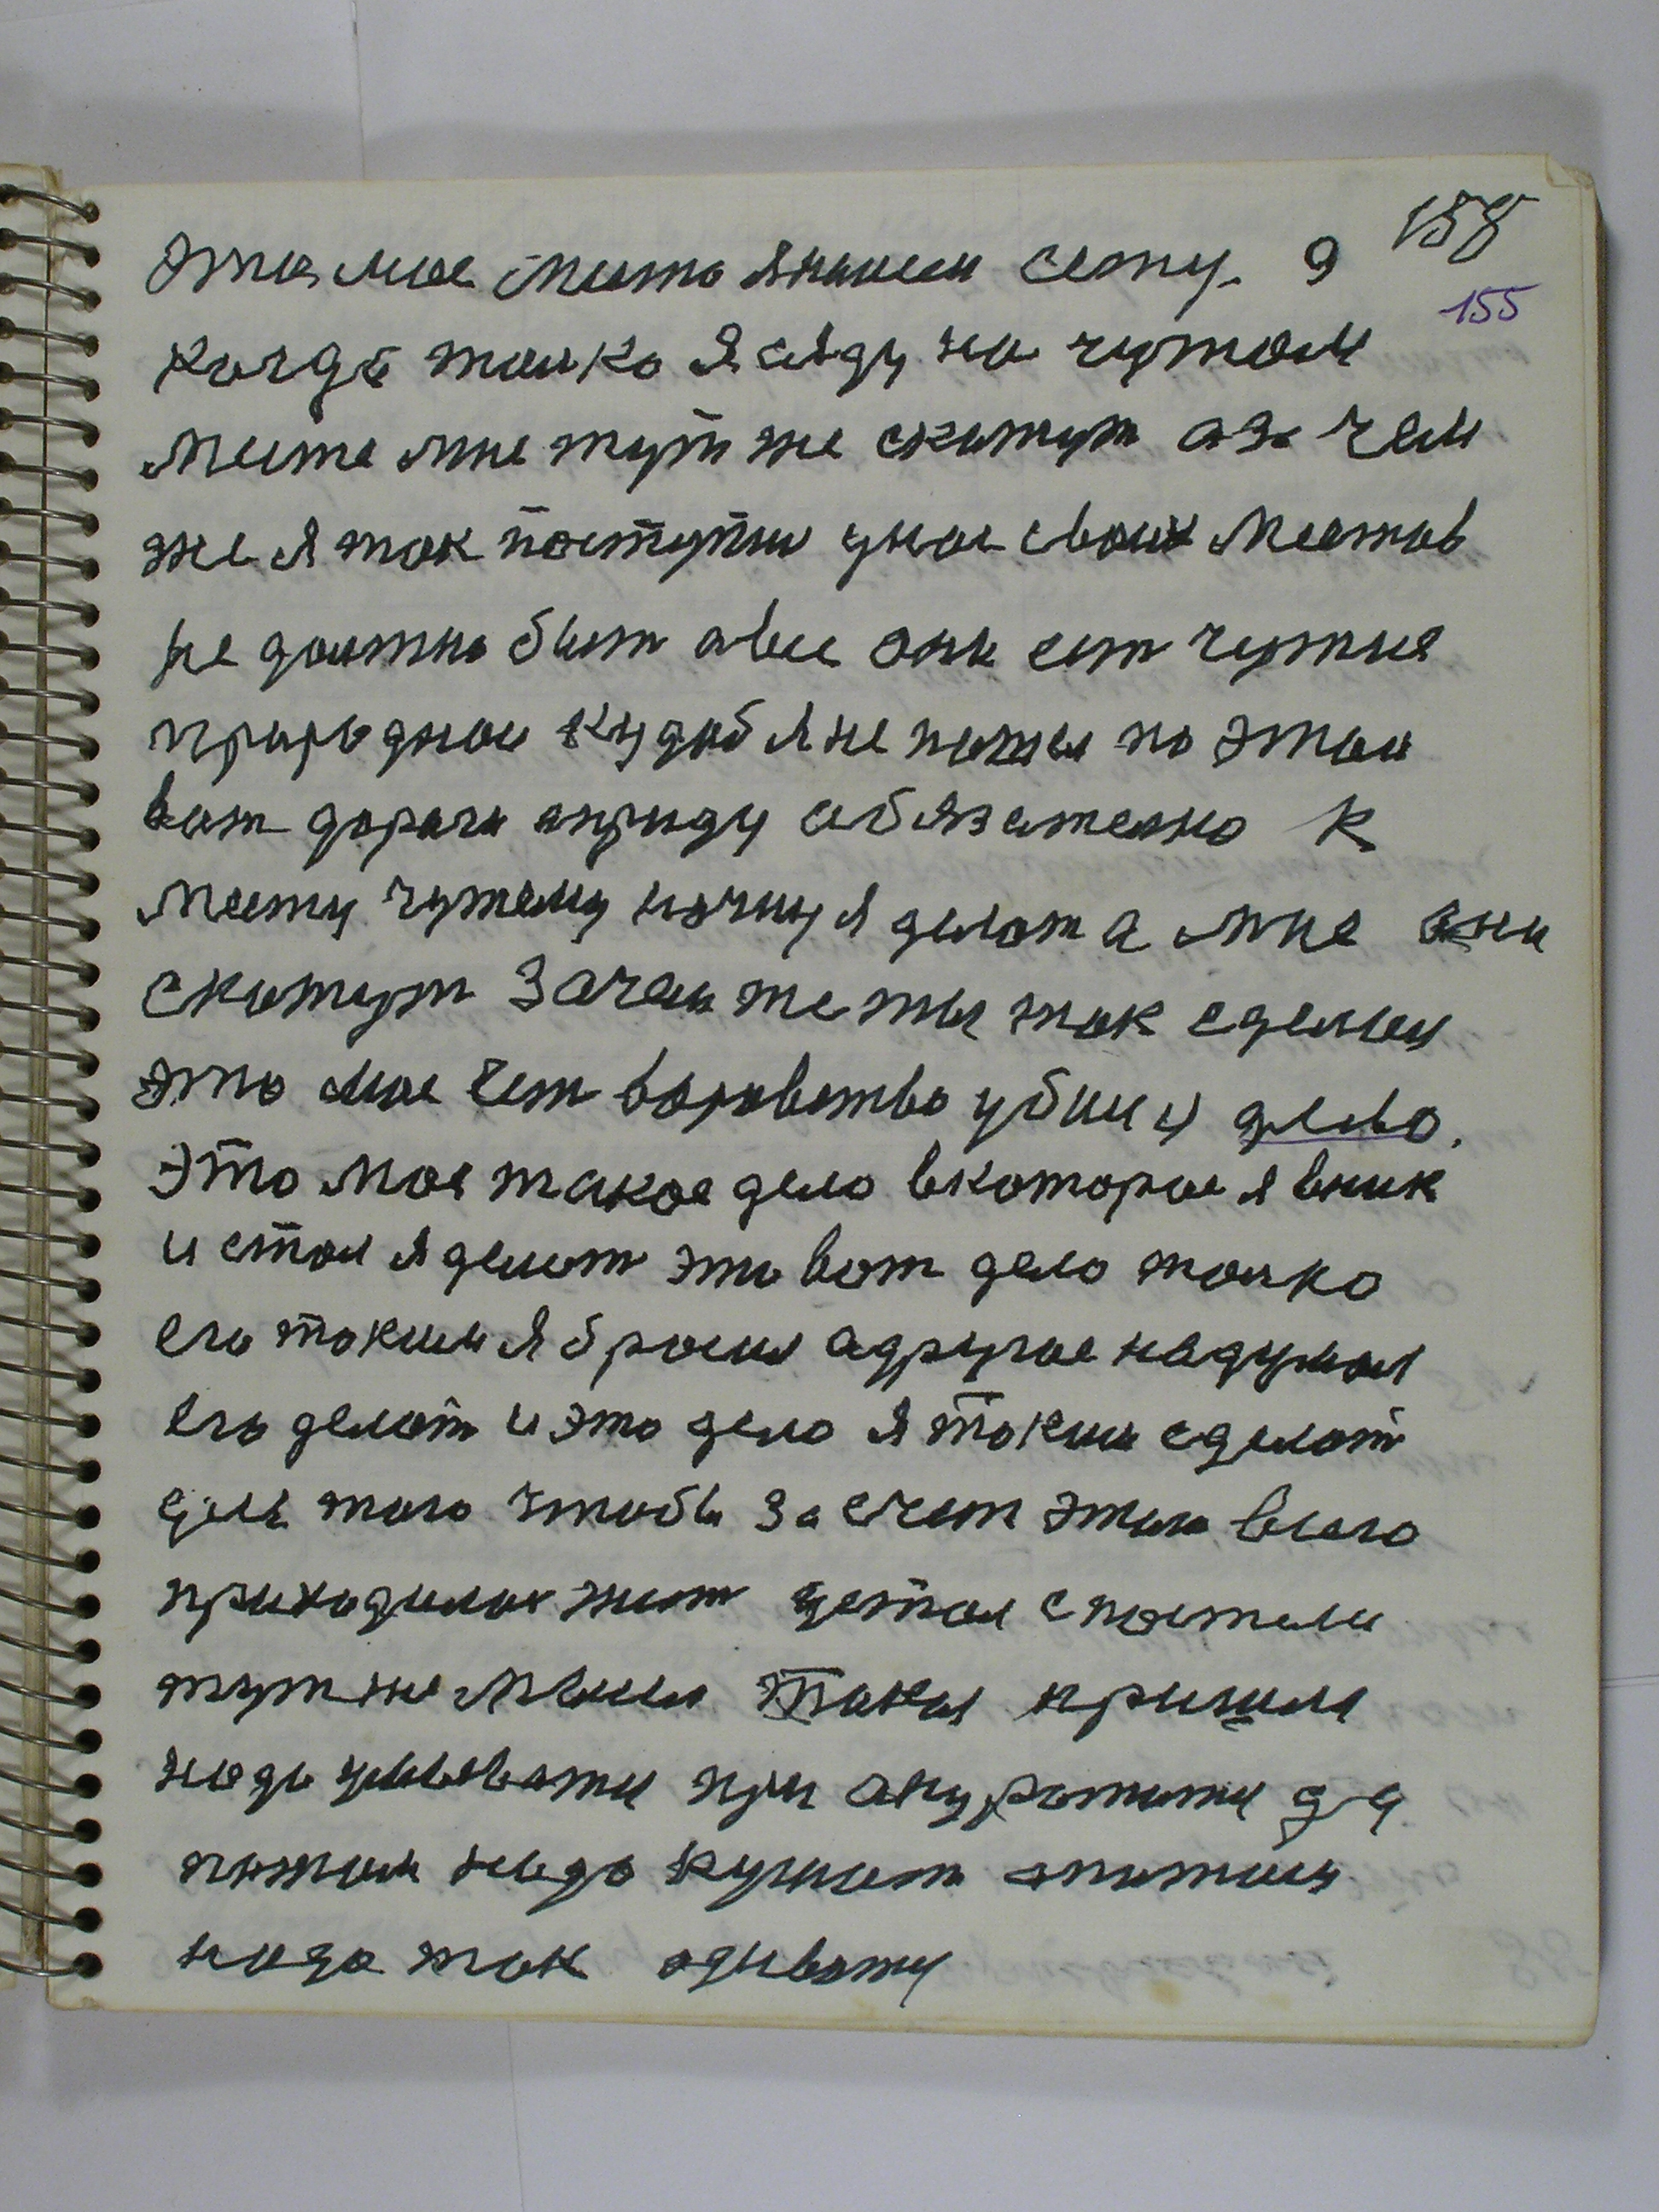 158
это мое место я нашел сяту. Э
155
когда толко я сяду на чужом
месте мне тут же скажут а за чем
же я так поступил у нас своих местов
не должно быт а все они ест чужие
природнои куда б я не пошел по этои
вот дороги априду обязателно к
месту чужому начну я делат а мне они
скажут Зачем же ты так сделал
это мое чет воровство убииц дело.
это мое такое дело вкоторое я вник
и стал я делат это вот дело толко
его таким я бросил адругое надумал
его делат и это дело я таким сделат
для того чтобы за счет этого всего
приходилос жит встал с постели
тут же мысел такая пришла
надо умыватц при акуратитц да
потом надо кушат опитац
надо так одыватц